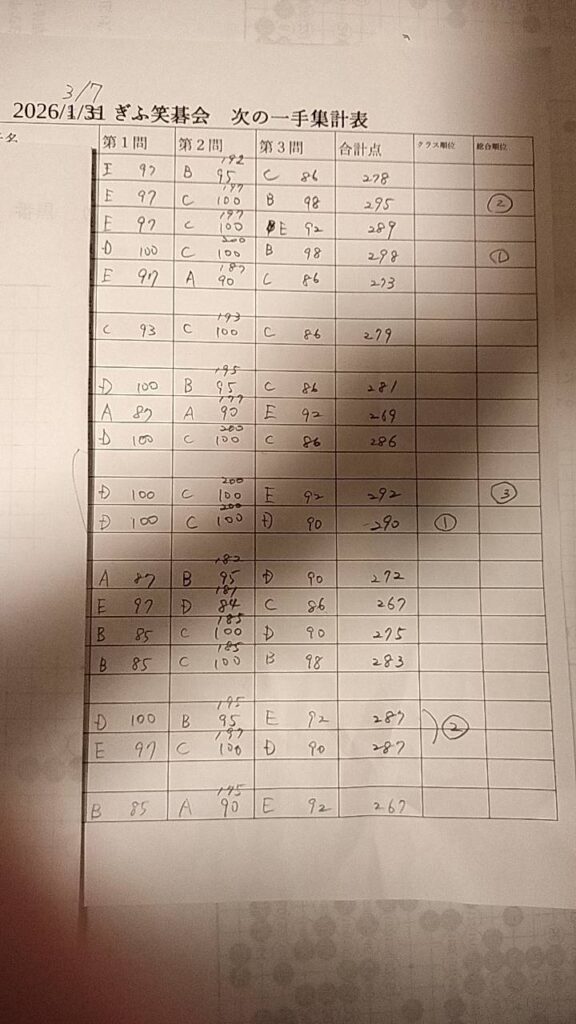 3/7
2026/1/31 ぎふ笑碁会 次の一手集計表
名 第1問 第2問 第3問 合計点 クラス順位 総合順位
192
E 97 B 95 C 86 278
197
E 97 C 100 B 98 295 ②
197
E 97 C 100 E 92 289
200
D 100 C 100 B 98 298 ①
187
E 97 A 90 C 86 273
193
C 93 C 100 C 86 279
195
D 100 B 95 C 86 281
177
A 87 A 90 E 92 269
200
D 100 C 100 C 86 286
200
D 100 C 100 E 92 292 ③
200
D 100 C 100 D 90 290 ①
182
A 87 B 95 D 90 272
181
E 97 D 84 C 86 267
185
B 85 C 100 D 90 275
185
B 85 C 100 B 98 283
195
D 100 B 95 E 92 287
197
E 97 C 100 D 90 287 ②
B 85 A 90 E 92 267